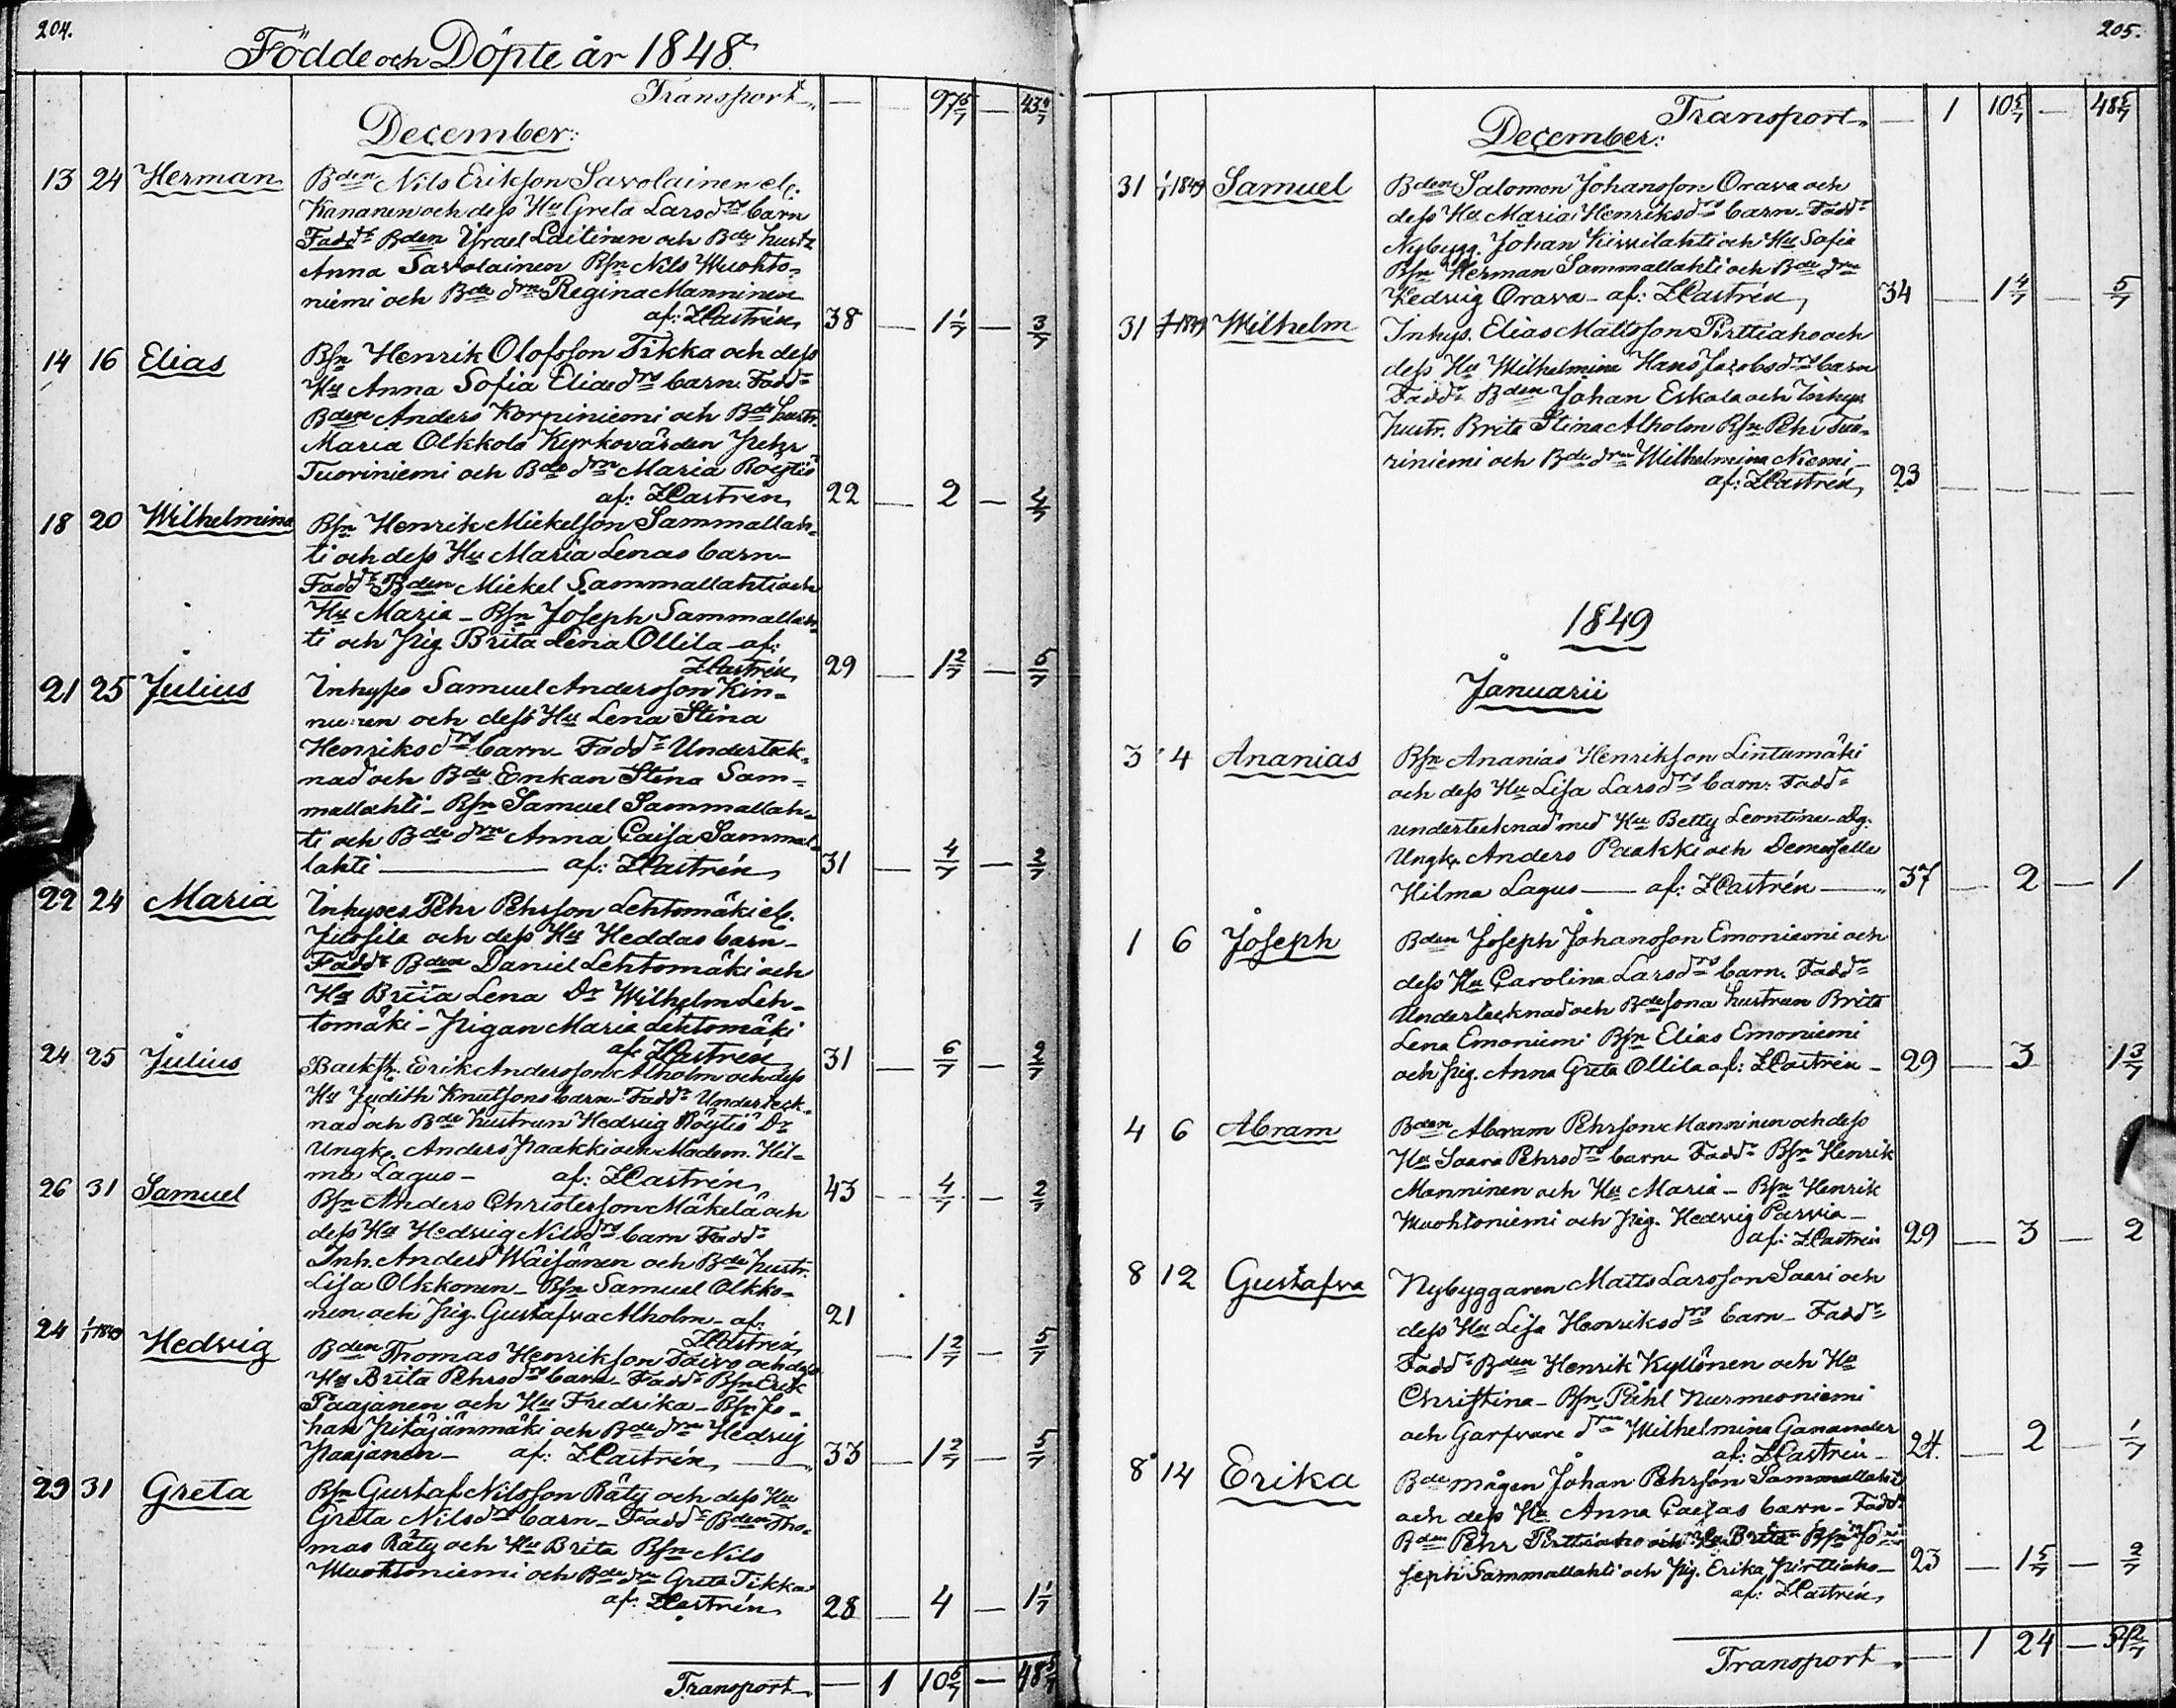 204.
Födde och Döpte år 1848.
Transport — 97 6/7 — 43
December:
13 24 Herman Bden Nils Erikson Savolainen el.
Kananen och dess Hu Greta Larsdrs barn
Faddr Bden Israel Laitinen och Bde hustr
Anna Savolainen Bsn Nils Wuohto-
niemi och Bde drn Regina Manninen
af: ZCastrén, 38 — 1 1/7 — 3/7
14 16 Elias Bsn Henrik Olofsson Tikka och dess
Hu Anna Sofia Eliædrs barn. Faddr
Bden Anders Korpiniemi och Bde hustr.
Maria Olkkola Kyrkovärden Pehr
Tuoriniemi och Bde drn Maria Röytiö
af: ZCastrén, 22 — 2 — 4/7
18 20 Wilhelmina Bsn Henrik Mickelson Sammallah-
ti och dess Hu Maria Lenas barn—
Faddr Bden Mickel Sammallahti och
Hu Maria — Bsn Joseph Sammallah-
ti och Pig. Brita Lena Ollila — af:
ZCastrén, 29 — 1 2/7 — 5/7
21 25 Julius Inhyses Samuel Andersson Kin-
nunen och dess Hu Lena Stina
Henriksdrs barn — Faddr Undertek-
nad och Bde Enkan Stina Sam-
mallahti — Bsn Samuel Sammallah-
ti och Bde drn Anna Caisa Sammal-
lahti — af: ZCastrén, 31 — 4/7 — 2/7
22 24 Maria Inhyses Pehr Pehrsson Lehtomäki el.
och dess Hu Heddas barn —
Faddr Bden Daniel Lehtomäki och
Hu Brita Lena Dr Wilhelm Leh-
tomäki — Pigan Maria Lehtomäki
af: ZCastrén 31 — 6/7 — 2/7
24 25 Julius Backst. Erik Andersson Alholm och dess
Hu Judith Knutsons barn — Faddr Underteck-
nad och Bde hustrun Hedvig Röytiö Dr
Ungk. Anders Paakki och Madem. Hil-
ma Lagus — af: ZCastrén, 43 — 4/7 — 2/7
26 31 Samuel Bsn Anders Christersson Mäkelä och
dess Hu Hedvig Nilsdrs barn Faddr
Inh. Anders Wäisänen och Bde hustr.
Lisa Olkkonen — Bsn Samuel Olkko-
nen och Pig. Gustafva Alholm — af: 21
ZCastrén, — 1 2/7 — 5/7
24 1/1 1849 Hedvig Bden Thomas Henrikson Toivo och dess
Hu Brita Pehrsdrs barn — Faddr Bsn Erik
Paajanen och Hu Fredrika — Bsn Jo-
han Pitäjänmäki och Bde drn Hedvig
Paajanen — af: ZCastrén, 33 — 1 2/7 — 5/7
29 31 Greta Bsn Gustaf Nilsson Räty och dess Hu
Greta Nilsdrs barn — Faddr Bden Tho-
mas Räty och Hu Brita Bsn Nils
Wuohtoniemi och Bde drn Greta Tikka
af: ZCastrén, 28 — 4 — 1 1/7
Transport — 1 10 5/7 — 48 5/7
205.
Transport — 1 10 5/7 — 48 5/7
December:
31 1/1 1849 Samuel Bden Salomon Johansson Orava och
dess Hu Maria Henriksdrs barn — Faddr
Nybygg. Johan Kivilahti och Hu Sofia
Bsn Herman Sammallahti och Bde drn
Hedvig Orava — af: ZCastrén, 34 — 1 4/7 — 5/7
31 1/1 1849 Wilhelm Inhys. Elias Mattsson Pirttiaho och
dess Hu Wilhelmina Hans Jacobsdrs barn
Faddr Bden Johan Eskola och Inhys
hustr. Brita Stina Alholm Bsn Pehr Tuo-
riniemi och Bde drn Wilhelmina Niemi —
af: ZCastrén, 23 — — — —
1849
Januarii
3 4 Ananias Bsn Ananias Henrikson Lintumäki
och dess Hu Lisa Larsdrs barn: Faddr
undertecknad med Hu Betty Leontine — Dg.
Ungk. Anders Paakki och Demoiselle
Hilma Lagus — af: ZCastrén — 37 — 2 — 1
1 6 Joseph Bden Joseph Johansson Emoniemi och
dess Hu Carolina Larsdrs barn. Faddr
Undertecknad och Bdesona hustrun Brita
Lena Emoniemi Bsn Elias Emoniemi
och Pig. Anna Greta Ollila af: ZCastrén — 29 — 3 1 3/7
4 6 Abram Bden Abram Pehrson Manninen och dess
Hu Saara Pehrsdrs barn Faddr Bsn Henrik
Manninen och Hu Maria — Bsn Henrik
Wuohtoniemi och Pig. Hedvig Parvia —
af: ZCastrén 29 — 3 — 2
8 12 Gustafva Nybyggaren Matts Larsson Saari och
dess Hu Lisa Henriksdrs barn — Faddr
Faddr Bden Henrik Kyllönen och Hu
Christina — Bsn Påhl Nurmesniemi
och Garfvare drn Wilhelmina Ganander
af: ZCastrén — 24. — 2 — 1/7
8 14 Erika Bde mågen Johan Pehrsson Sammallahti
och dess Hu Anna Caisas barn — Faddr
Bden Pehr Pirttiaho och Hu Brita Bsn Jo-
seph Sammallahti och Pig. Erika Pirttiaho — 23 — 1 5/7 — 2/7
af: ZCastrén,
Transport — 1 24 — 54 2/7